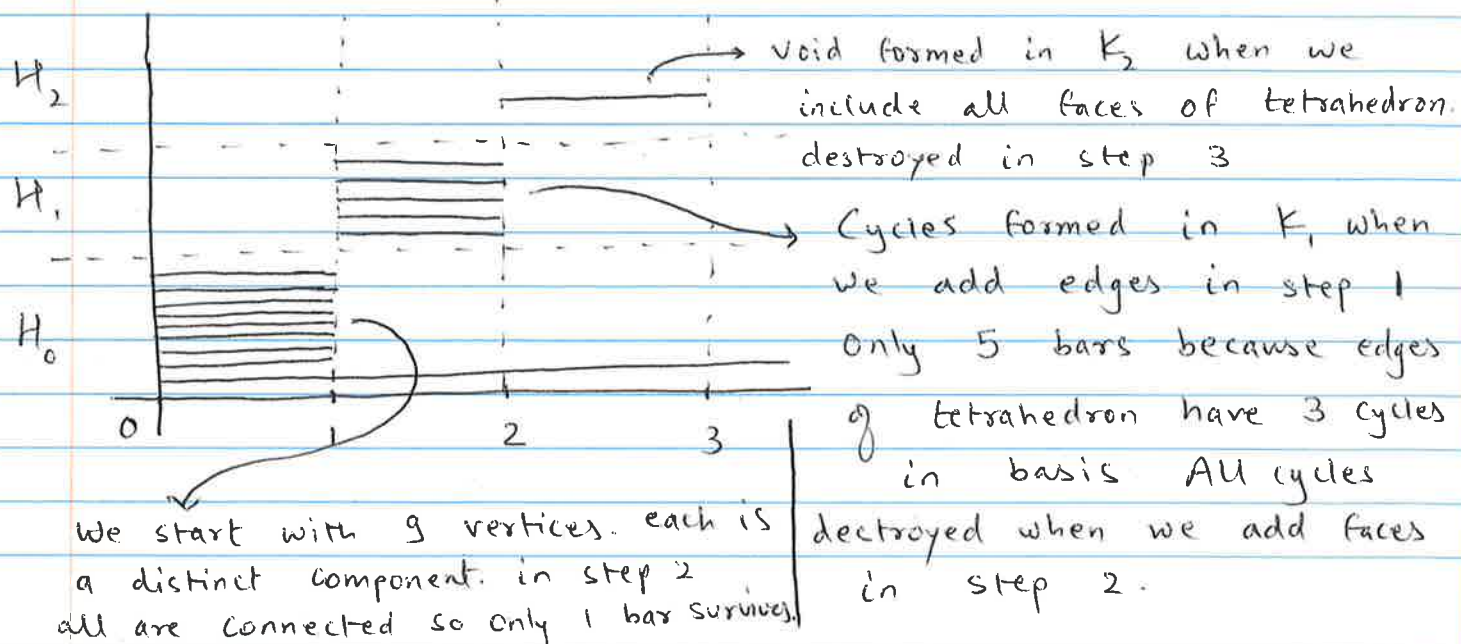 H₂
void formed in K₂ when we
include all faces of tetrahedron.
destroyed in step 3
H₁
Cycles formed in K₁ when
we add edges in step 1
only 5 bars because edges
of tetrahedron have 3 cycles
in basis All cycles
dectroyed when we add faces
in step 2.
H₀
0 1 2 3
We start with 9 vertices. each is
a distinct component. in step 2
all are connected so only 1 bar survives.